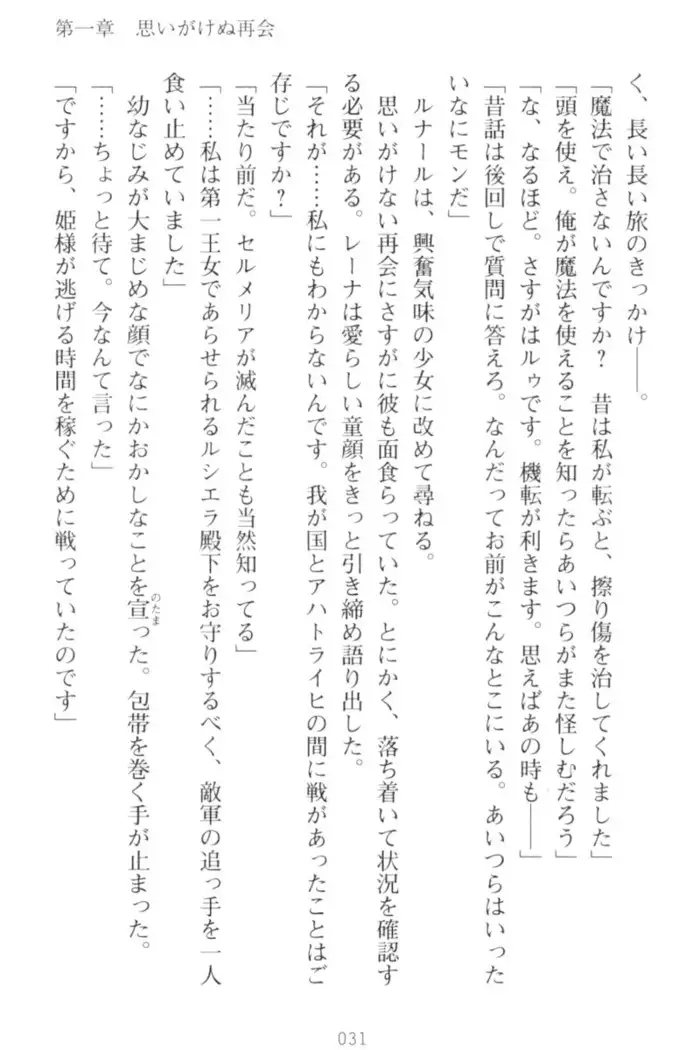 第一章　思いがけぬ再会
く、長い長い旅のきっかけ――。
「魔法で治さないんですか？　昔は私が転ぶと、擦り傷を治してくれました」
「頭を使え。俺が魔法を使えることを知ったらあいつらがまた怪しむだろう」
「な、なるほど。さすがはルゥです。機転が利きます。思えばあの時も――」
「昔話は後回しで質問に答えろ。なんだってお前がこんなとこにいる。あいつらはいった
いなにモンだ」
ルナールは、興奮気味の少女に改めて尋ねる。
思いがけない再会にさすがに彼も面食らっていた。とにかく、落ち着いて状況を確認す
る必要がある。レーナは愛らしい童顔をきっと引き締め語り出した。
「それが……私にもわからないんです。我が国とアハトライヒの間に戦があったことはご
存じですか？」
「当たり前だ。セルメリアが滅んだことも当然知ってる」
「……私は第一王女であらせられるルシエラ殿下をお守りするべく、敵軍の追っ手を一人
食い止めていました」
幼なじみが大まじめな顔でなにかおかしなことを宣った。包帯を巻く手が止まった。
のたま
「……ちょっと待て。今なんて言った」
「ですから、姫様が逃げる時間を稼ぐために戦っていたのです」
031